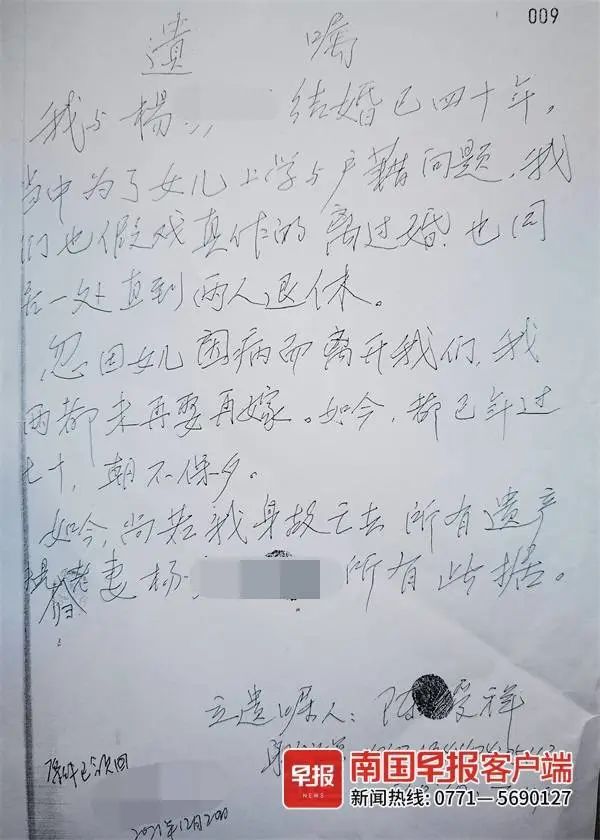 009
遺 嘱
我与楊 结婚已四十年，
当中为了女儿上学与户籍问题，我
们也假戏真作的离过婚，也同
居一处直到两人退休。
忽因女儿因病而离开我们，我
两都未再娶再嫁。如今，都已年过
七十，朝不保夕。
如今，尚若我身故亡去 所有遗产
归老妻杨 所有此据。
立遗嘱人：陈 祥
原件已领回
2021年12月20日
早报
NEWS
南国早报客户端
新闻热线：0771—5690127